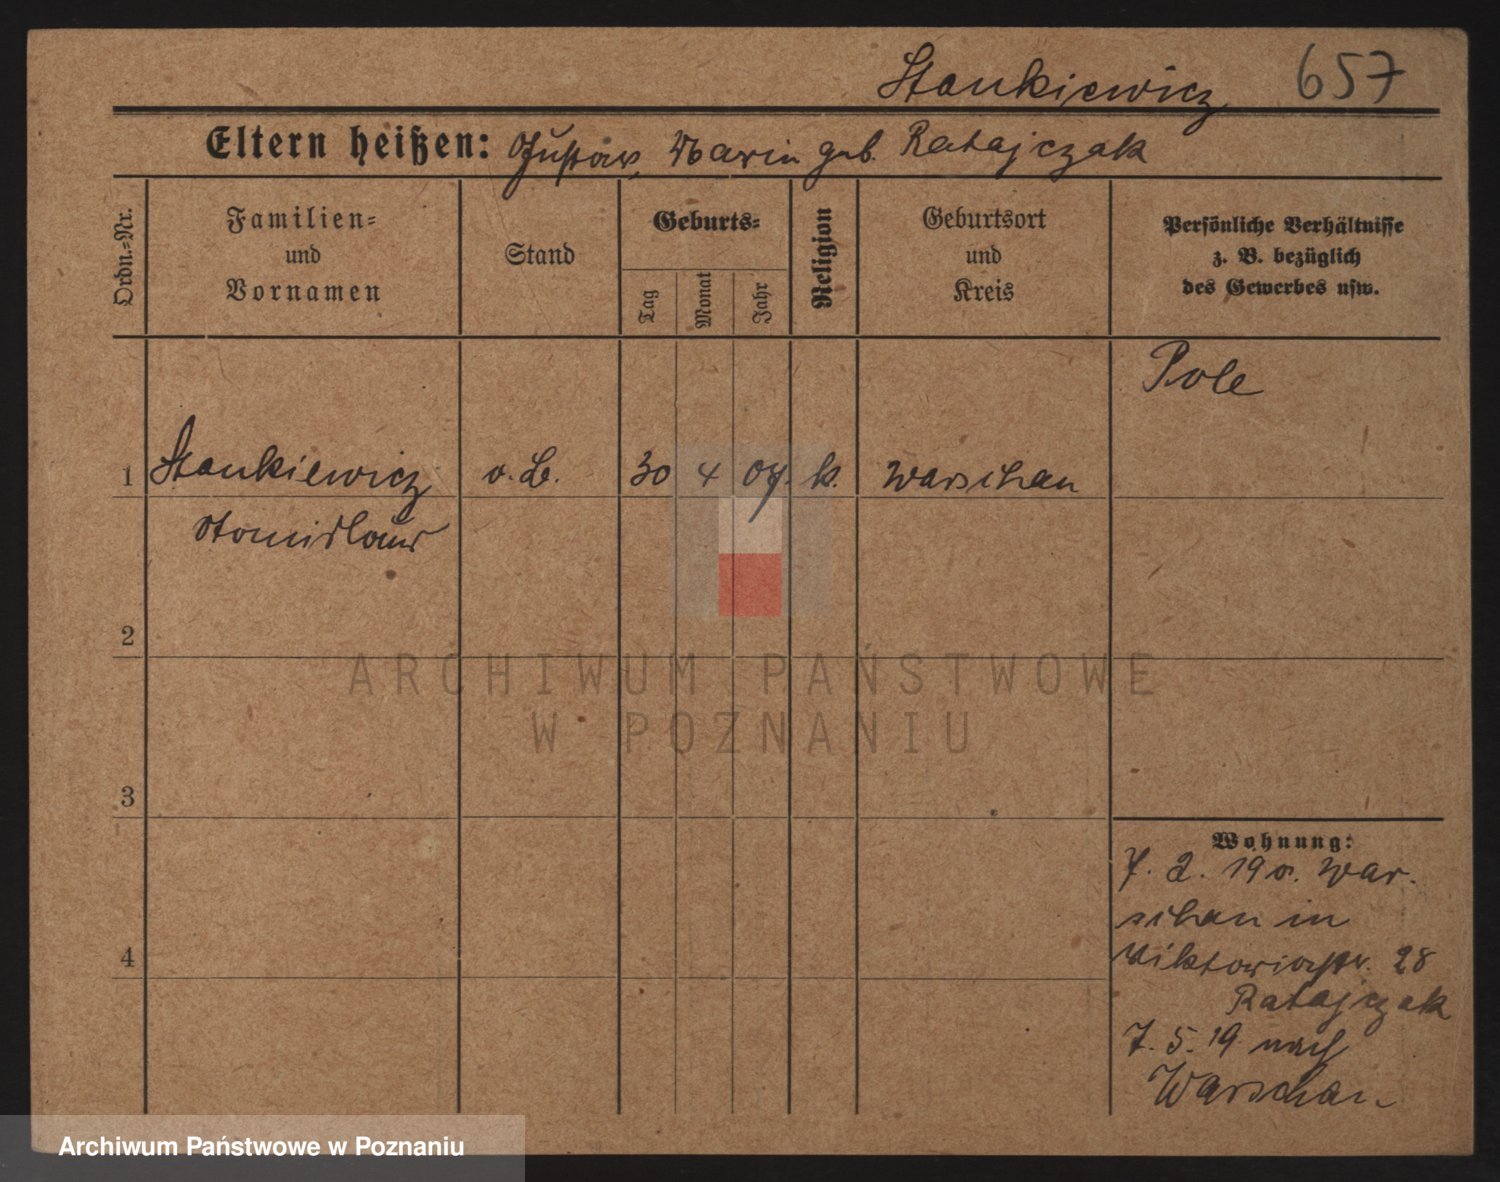 Stankiewicz 657
Eltern heißen: Gustaw, Maria geb. Ratajczak
Ordn.=Nr.
Familien=
und
Vornamen
Stand
Geburts=
Tag
Monat
Jahr
Religion
Geburtsort
und
Kreis
Persönliche Verhältnisse
z. B. bezüglich
des Gewerbes usw.
Pole
1 Stankiewicz o. B. 30 4 07. k. Warschau
Stanislaus
2
ARCHIWUM PAŃSTWOWE
W POZNANIU
3
Wohnung:
7. 2. 19 v. War-
schau in
4
Viktoriastr. 28
Ratajczak
7. 5. 19 nach
Warschau
Archiwum Państwowe w Poznaniu